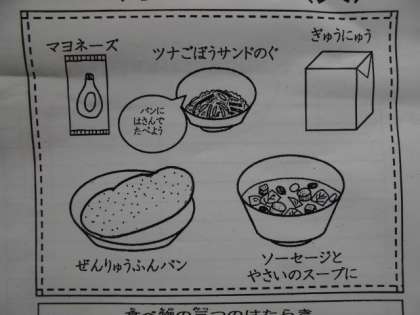 マヨネーズ
ツナごぼうサンドのぐ
ぎゅうにゅう
パンに
はさんで
たべよう
ぜんりゅうふんパン
ソーセージと
やさいのスープに